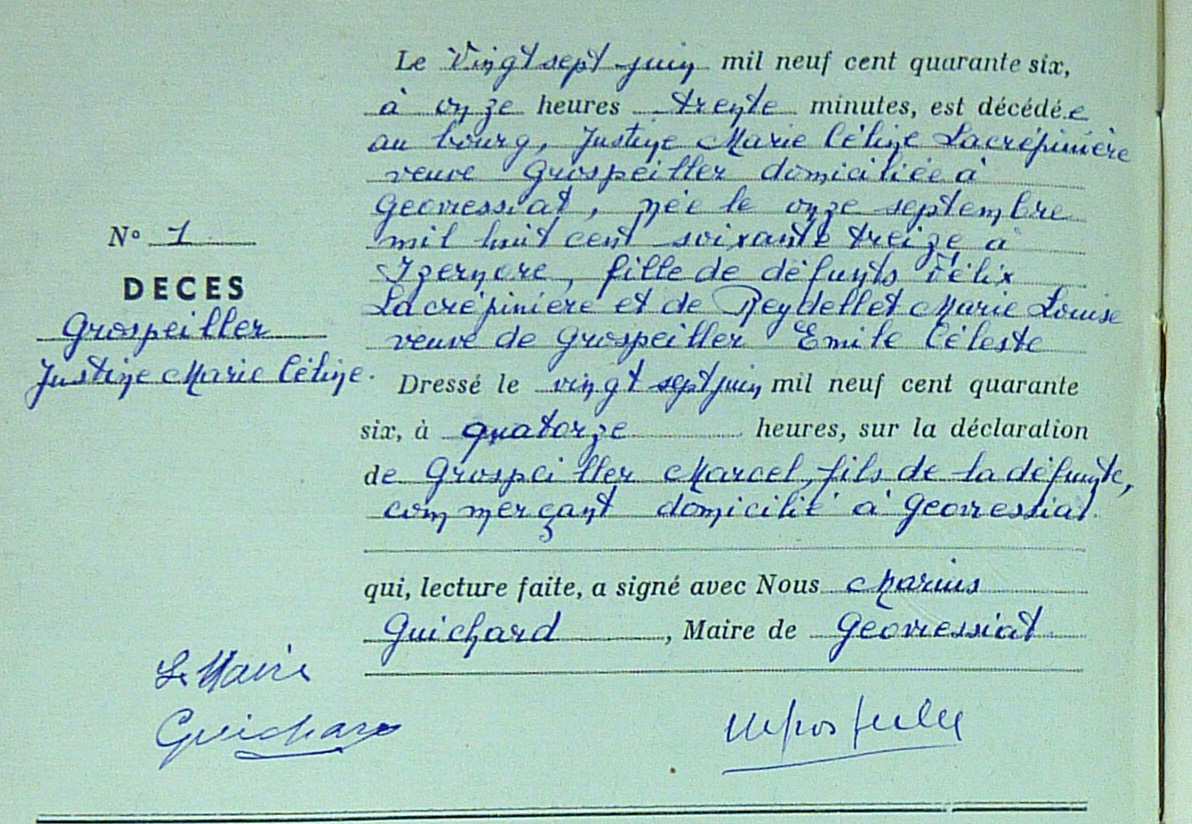 Le Vingt sept juin mil neuf cent quarante six,
à onze heures trente minutes, est décédée
au bourg, Justine Marie Céline Lacrépinière
veuve Grospeiller domiciliée à
Geovressiat, née le onze septembre
mil huit cent soixante treize à
Izernore, fille de défunts Félix
Lacrépinière et de Reydellet Marie Louise
veuve de Grospeiller Emile Céleste
N° 1
DECES
Grospeiller
Justine Marie Céline.
Dressé le vingt sept juin mil neuf cent quarante
six, à quatorze heures, sur la déclaration
de Grospeiller Marcel, fils de la défunte,
commerçant domicilié à Geovressiat.
qui, lecture faite, a signé avec Nous Marius
Guichard, Maire de Geovressiat.
Le Maire
Guichard